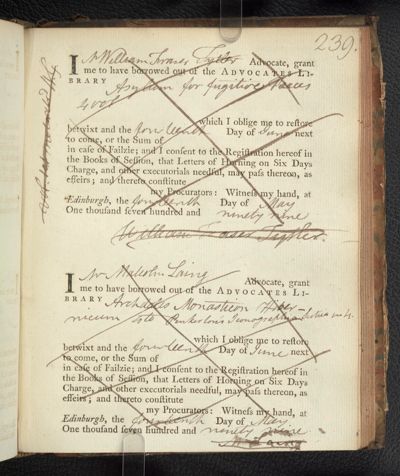 239.
I Mr William Fraser Tytler Advocate, grant
me to have borrowed out of the ADVOCATES LI-
BRARY Asylum for fugitive Pieces
4 vols
which I oblige me to restore
betwixt and the fourteenth Day of June next
to come, or the Sum of
in case of Failzie; and I consent to the Registration hereof in
the Books of Session, that Letters of Horning on Six Days
Charge, and other executorials needful, may pass thereon, as
effeirs; and thereto constitute
my Procurators: Witness my hand, at
Edinburgh, the fourteenth Day of May
One thousand seven hundred and ninety nine
William Fraser Tytler.
I Mr Malcolm Laing Advocate, grant
me to have borrowed out of the ADVOCATES LI-
BRARY Archdalls Monasticon Hiber-
nicum 4to Pinkerton's Iconographia Scotica
which I oblige me to restore
betwixt and the fourteenth Day of June next
to come, or the Sum of
in case of Failzie; and I consent to the Registration hereof in
the Books of Session, that Letters of Horning on Six Days
Charge, and other executorials needful, may pass thereon, as
effeirs; and thereto constitute
my Procurators: Witness my hand, at
Edinburgh, the fourteenth Day of May
One thousand seven hundred and ninety nine
M Laing